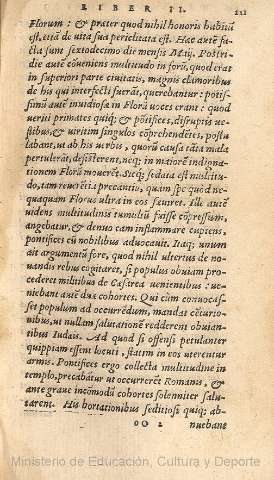 LIBER II. 211
Florum: & præter quod nihil honoris habitũ
est, etiã de vita sua periclitata est. Hæc autẽ fa-
cta sunt sextodecimo die mensis Maij. Postri-
die autẽ cõueniens multitudo in forũ, quod erat
in superiori parte ciuitatis, magnis clamoribus
de his qui interfecti fuerãt, querebantur: potis-
simũ autẽ inuidiosa in Florũ voces erant: quod
veriti primates quiq; & põtifices, disruptis ve-
stibus, & viritim singulos cõprehendẽtes, postu
labant, ut ab his uerbis, quorũ causa tãta mala
pertulerãt, desisterent, neq; in maiorẽ indignat-
tionem Florũ mouerẽt. Sicq; sedata est multitu-
do, tam reuerẽtia precantiũ, quam spe quòd ne-
quaquam Florus ultra in eos sæuiret. Ille autẽ
uidens multitudinis tumultũ fuisse cõpressum,
angebatur, & denuo eam inflammare cupiens,
pontifices cũ nobilibus aduocauit. Itaq; unum
ait argumentũ fore, quod nihil ulterius de no-
uandis rebus cogitarẽt, si populus obuiam pro-
cederet militibus de Cæsarea uenientibus: ue-
niebant autẽ duæ cohortes. Qui cùm conuocas-
set populum ad occurrẽdum, mandat cẽturio-
nibus, ut nullam salutationẽ redderent obuian-
tibus Iudæis. Ad quod si offensi petulanter
quippiam essent locuti, statim in eos uterentur
armis. Pontifices ergo collecta multitudine in
templo, precabãtur ut occurrerẽt Romanis, &
ante graue incomodũ cohortes solenniter salu-
tarent. His hortationibus seditiosi quiq; ab-
OO 2 nuebant
Ministerio de Educación, Cultura y Deporte